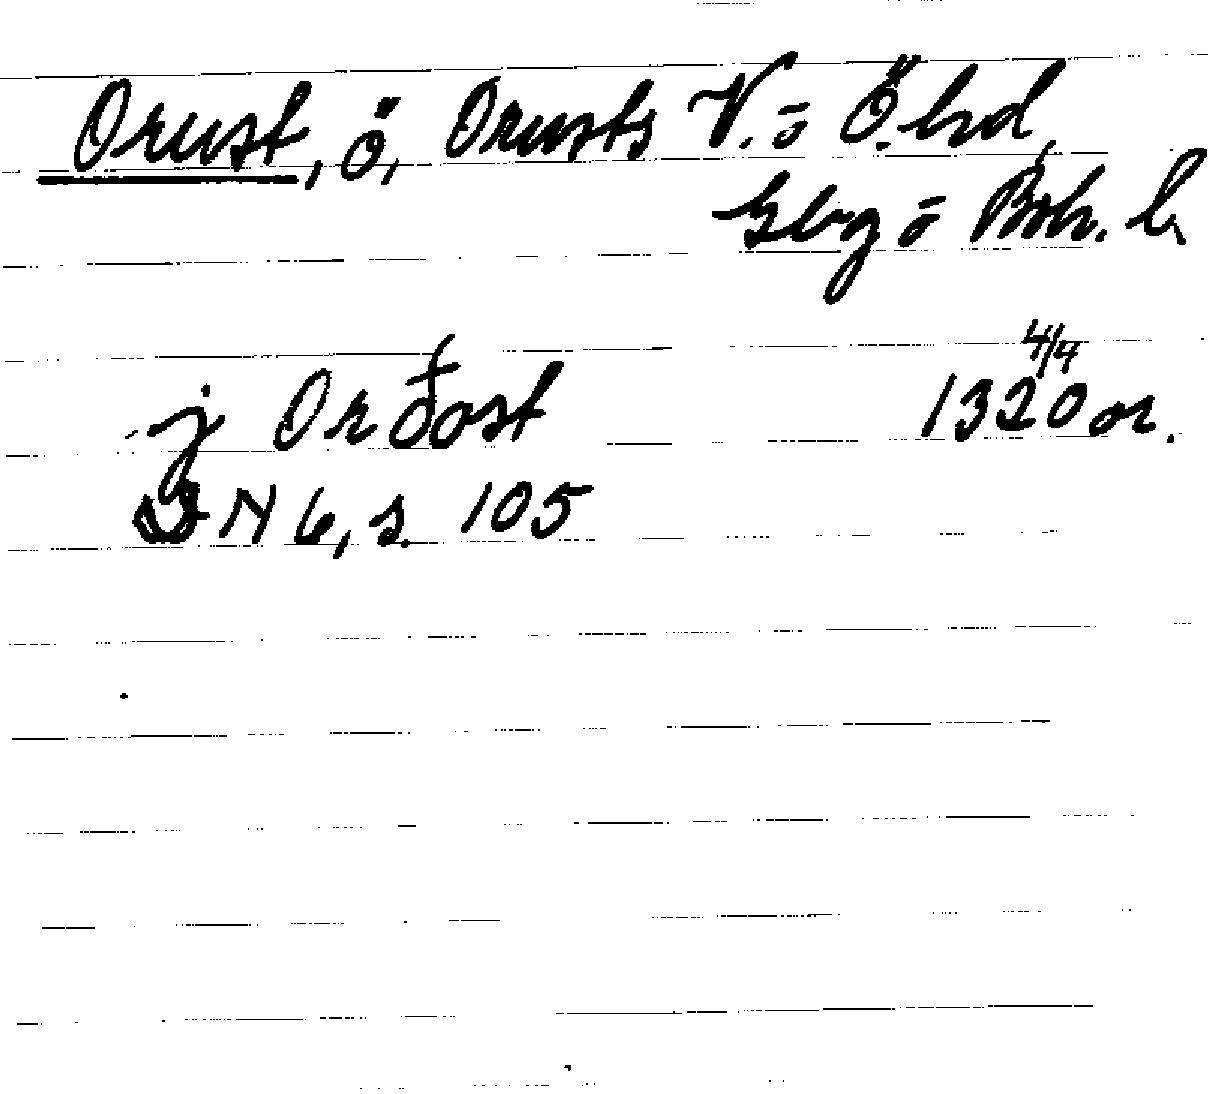 Orust, ö, Orusts V. o Ö. hd,
Gbg o Boh. l.
j Orðost 4/4 1320 or.
DN 6, s. 105